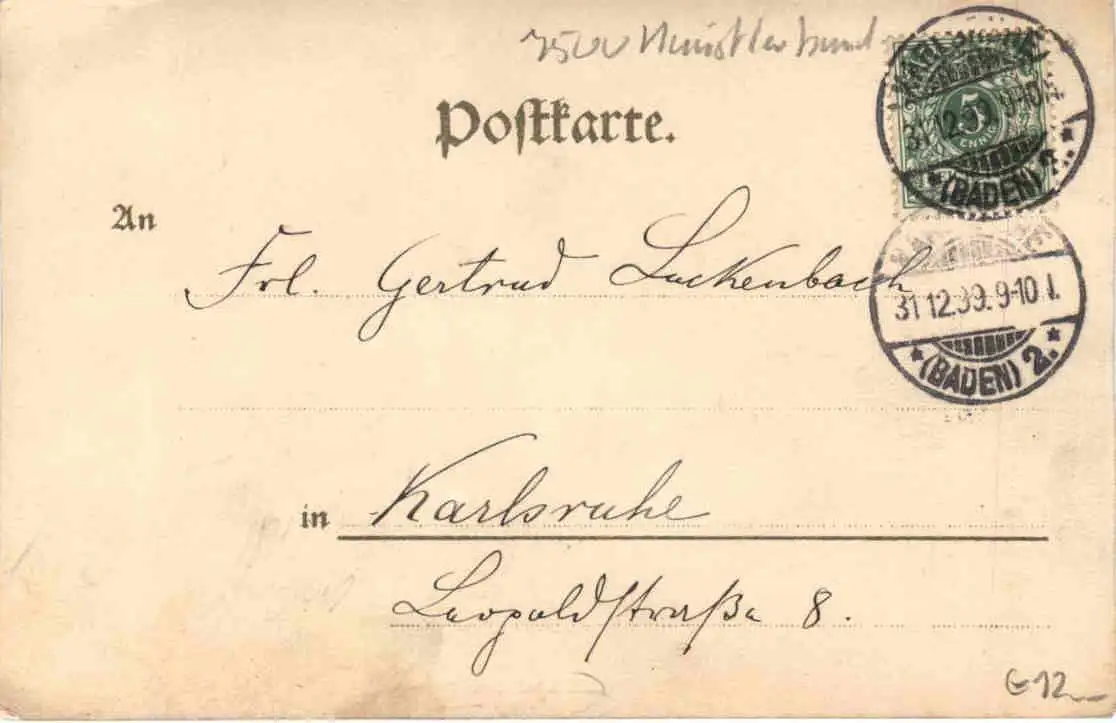 Künstlerbund
Postkarte.
KARLSRUHE
5
31.12.99. 9-10 V.
* (BADEN) 2. *
An
Frl. Gertrud Luckenbach
31.12.99. 9-10 V.
* (BADEN) 2. *
in Karlsruhe
Leopoldstraße 8.
G12